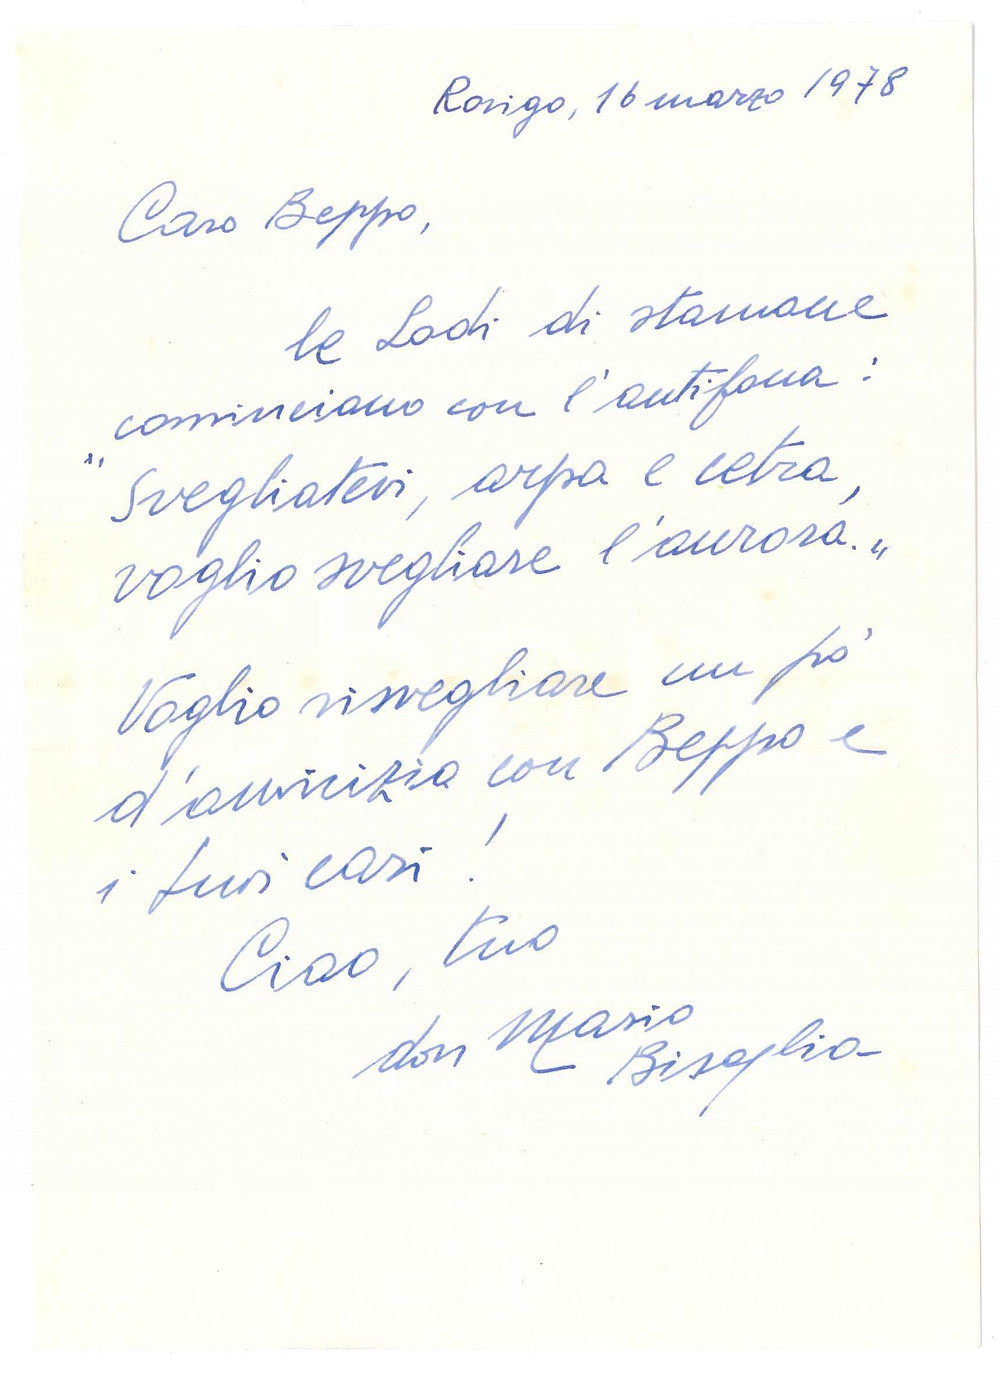 Rovigo, 16 marzo 1978
Caro Beppo,
le Lodi di stamane
cominciano con l'antifona:
"Svegliatevi, arpa e cetra,
voglio svegliare l'aurora."
Voglio risvegliare un pò
d'amicizia con Beppo e
i tuoi cari!
Ciao, tuo
don Mario
Bisaglia